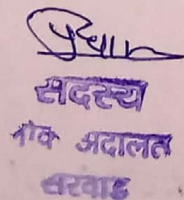 सदस्य
लोक अदालत
सरवाड